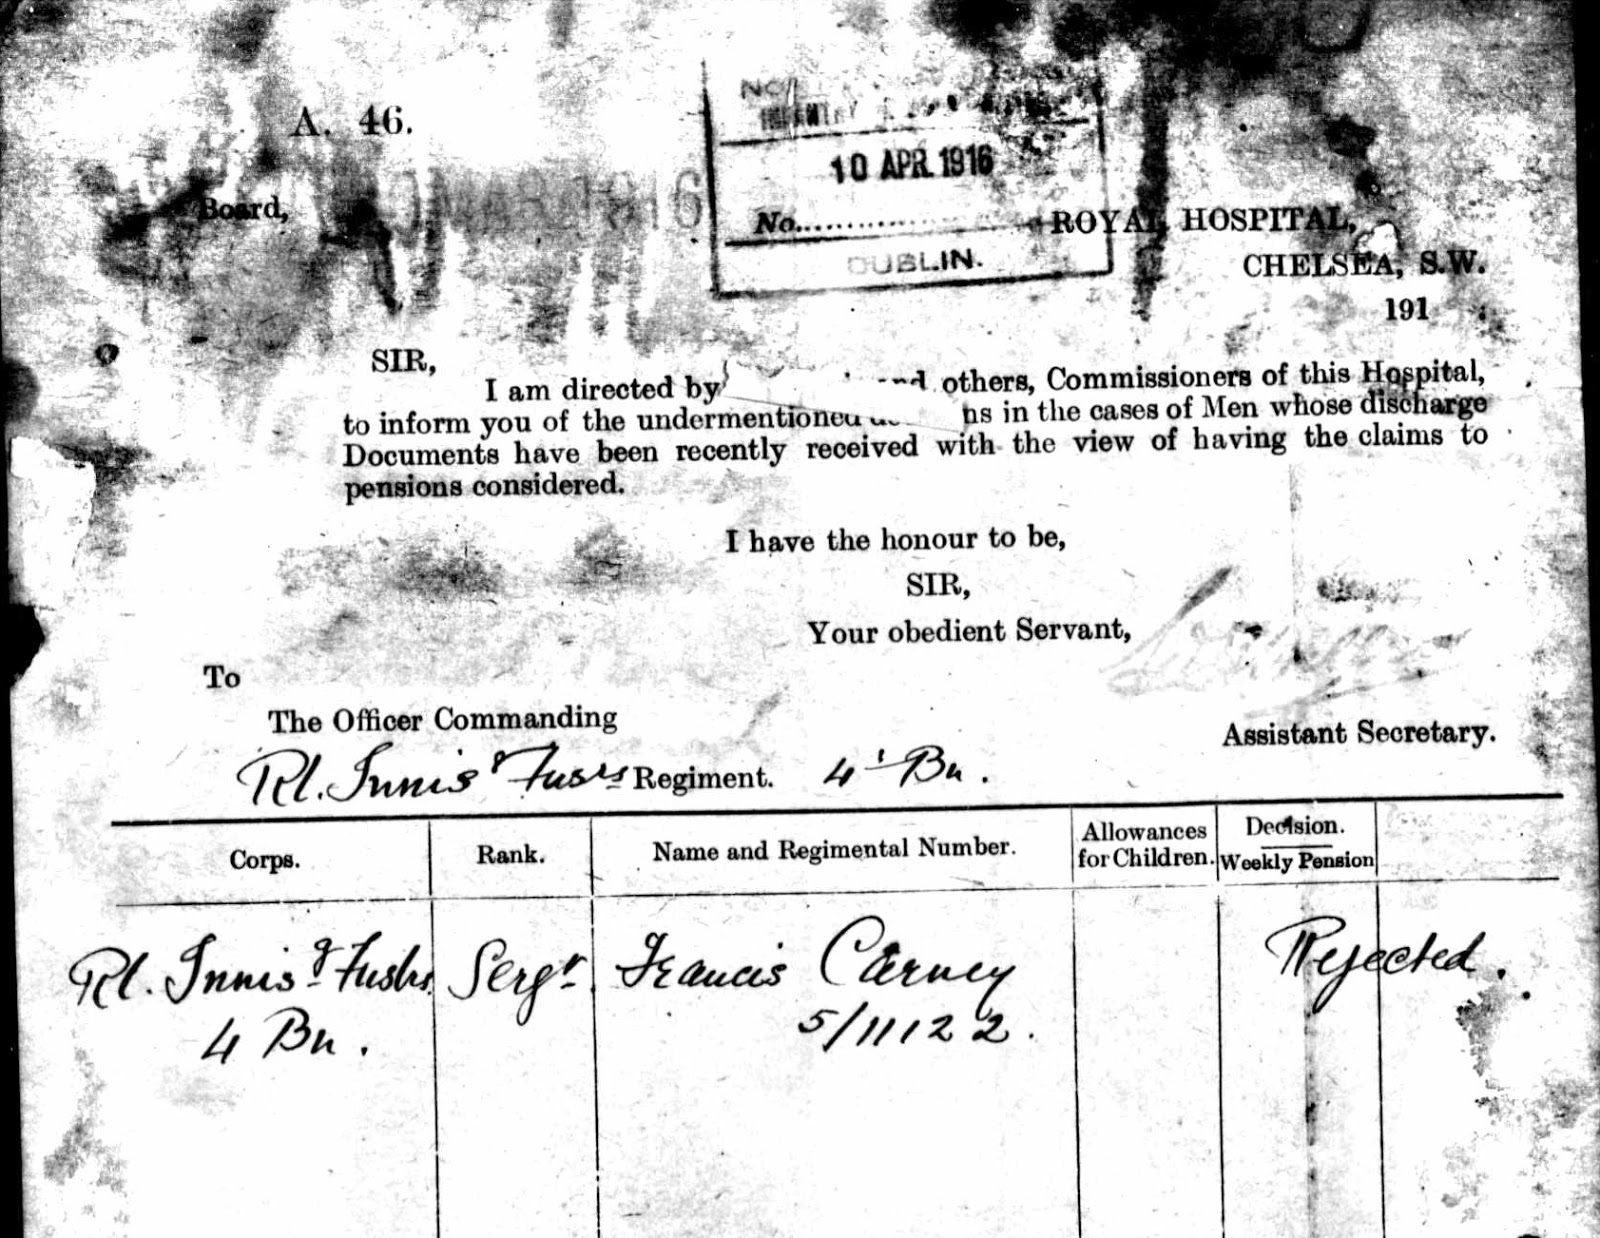 A. 46.
10 APR. 1916
MAR 1916
Board,
No.
ROYAL HOSPITAL,
DUBLIN.
CHELSEA, S.W.
191
SIR,
I am directed by others, Commissioners of this Hospital,
to inform you of the undermentioned in the cases of Men whose discharge
Documents have been recently received with the view of having the claims to
pensions considered.
I have the honour to be,
SIR,
Your obedient Servant,
To
The Officer Commanding
Assistant Secretary.
Rl. Innis g Fusrs Regiment. 4 Bn.
Corps. Rank. Name and Regimental Number. Allowances for Children. Decision. Weekly Pension
Rl. Innis g Fusrs Sergt Francis Carney Rejected.
4 Bn. 5/11122.